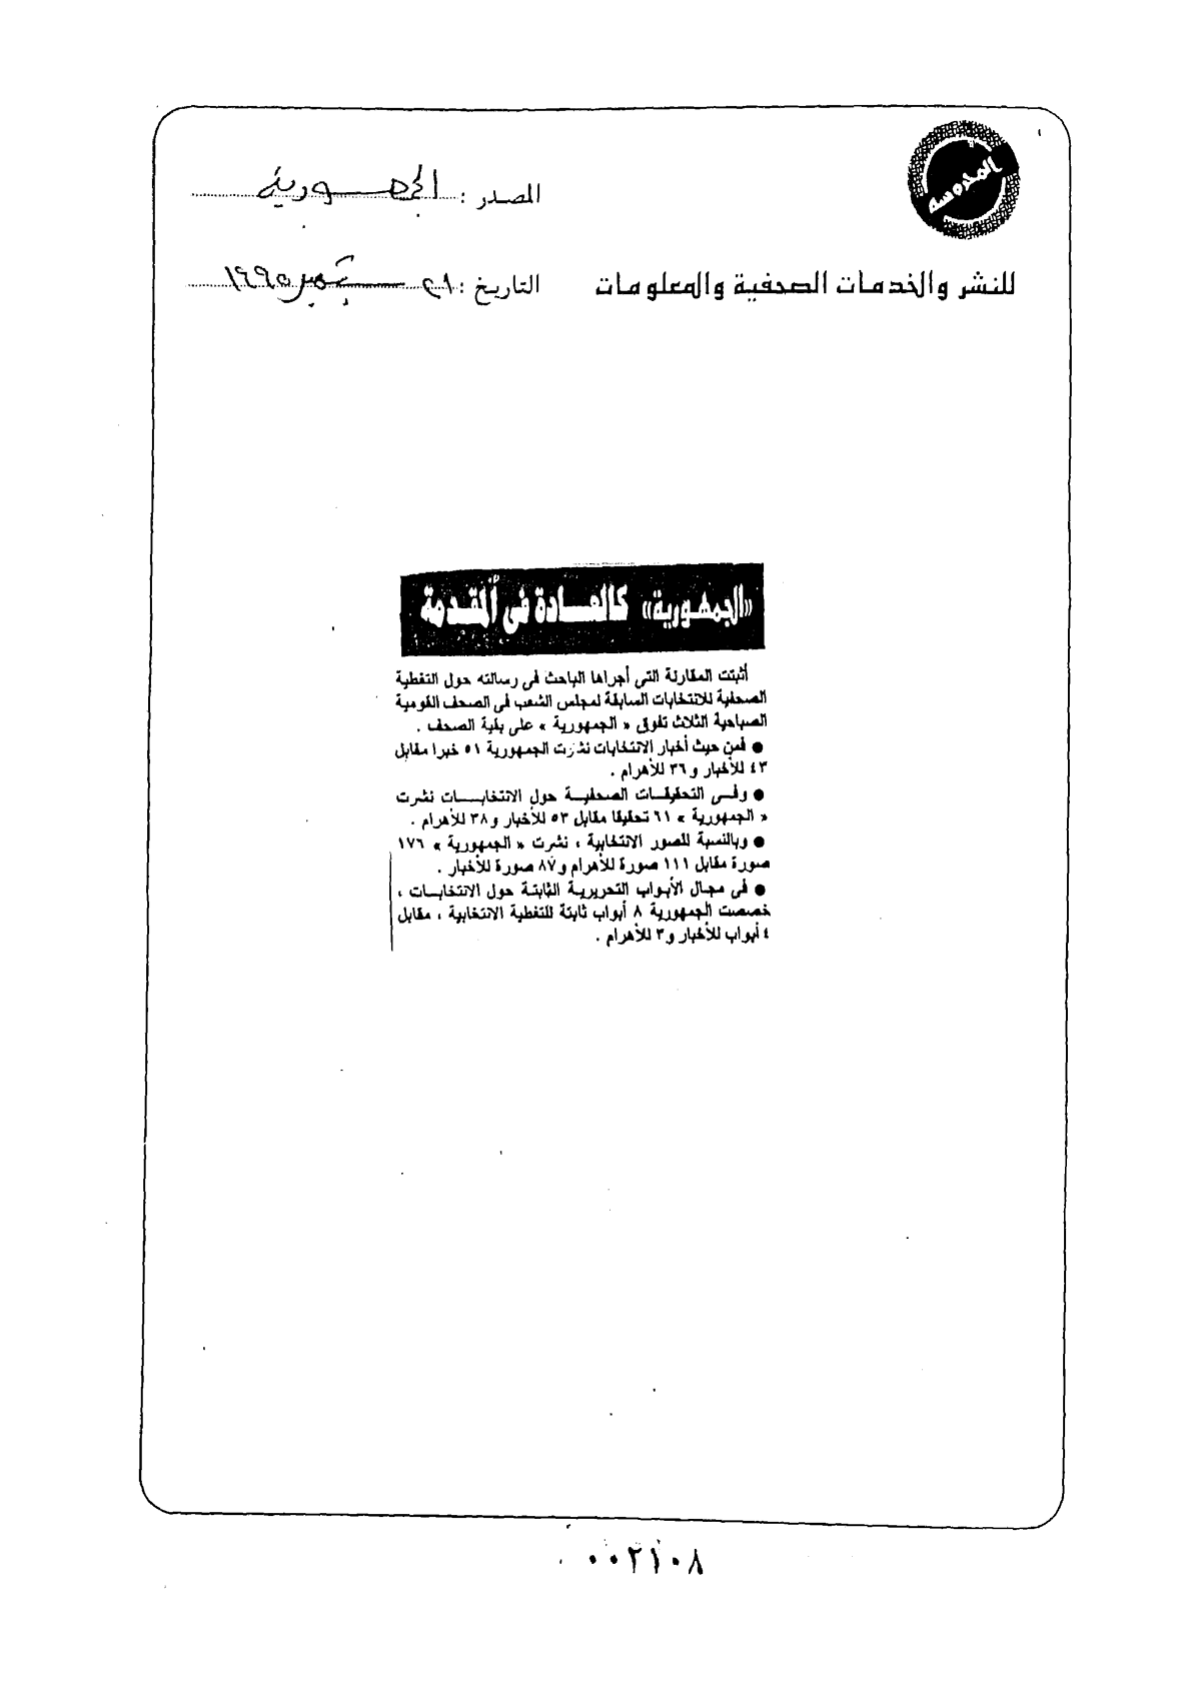 المحروسة
المصدر : الجمهورية
للنشر والخدمات الصحفية والمعلومات
التاريخ : ٢١ سبتمبر ١٩٩٥
«الجمهورية» كالعادة فى المقدمة
أثبتت المقارنة التى أجراها الباحث فى رسالته حول التغطية
الصحفية للانتخابات السابقة لمجلس الشعب فى الصحف القومية
الصباحية الثلاث تفوق « الجمهورية » على بقية الصحف .
● فمن حيث أخبار الانتخابات نشرت الجمهورية ٥١ خبرا مقابل
٤٣ للأخبار و ٣٦ للأهرام .
● وفى التحقيقات الصحفية حول الانتخابات نشرت
« الجمهورية » ٦١ تحقيقا مقابل ٥٣ للأخبار و ٣٨ للأهرام .
● وبالنسبة للصور الانتخابية ، نشرت « الجمهورية » ١٧٦
صورة مقابل ١١١ صورة للأهرام و ٨٧ صورة للأخبار .
● فى مجال الأبواب التحريرية الثابتة حول الانتخابات ،
خصصت الجمهورية ٨ أبواب ثابتة للتغطية الانتخابية ، مقابل
٤ أبواب للأخبار و ٣ للأهرام .
٠٠٢١٠٨